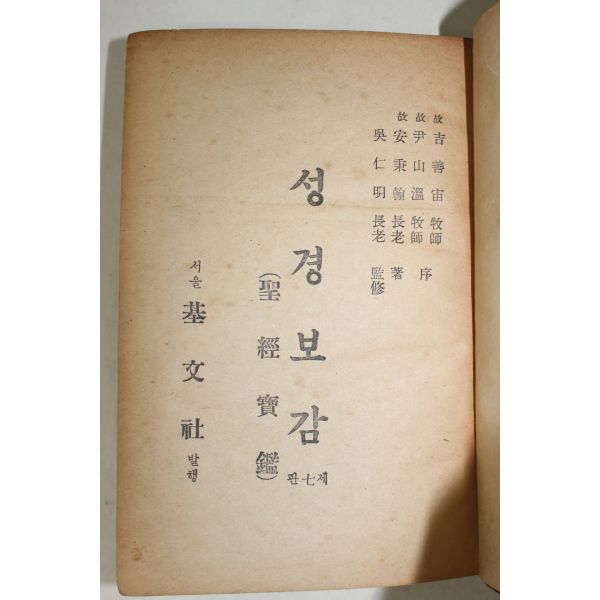 故吉善宙牧師
故尹山溫牧師 序
故安秉翰長老 著
吳仁明長老 監修
성경보감
제七판
(聖經寶鑑)
서울 基文社 발행